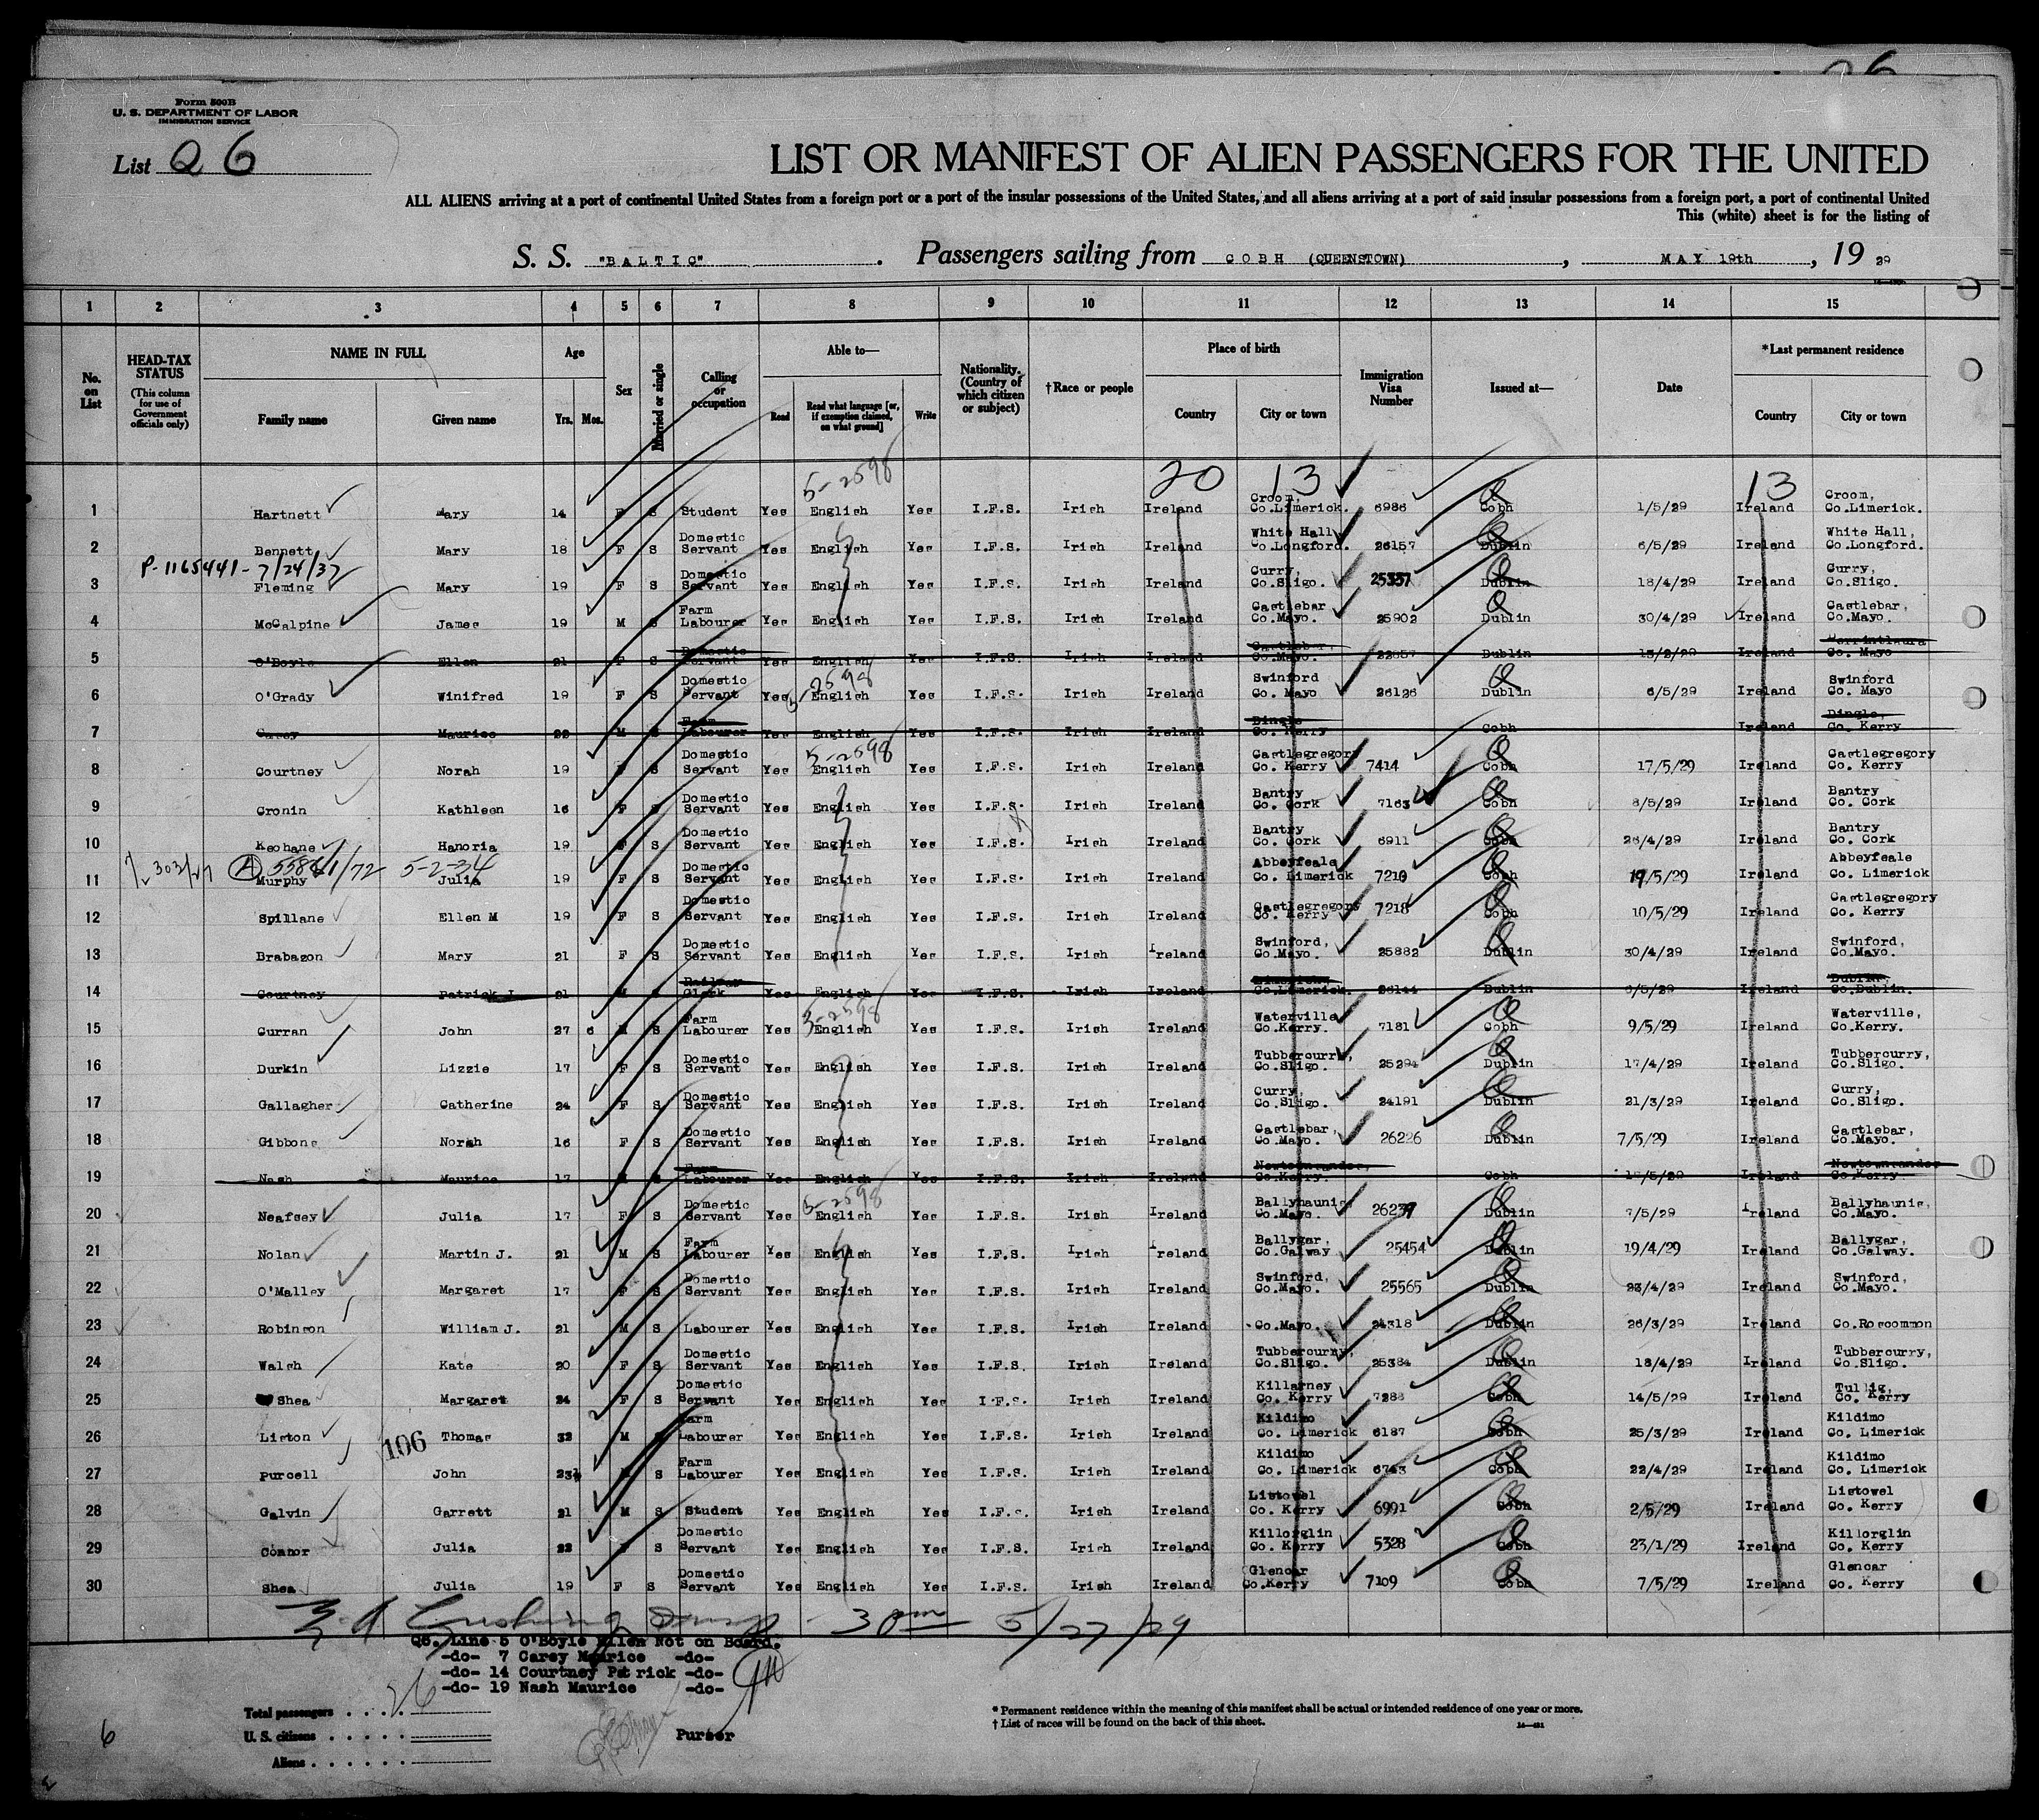 26
Form 500B
U. S. DEPARTMENT OF LABOR
IMMIGRATION SERVICE
List Q 6
LIST OR MANIFEST OF ALIEN PASSENGERS FOR THE UNITED
ALL ALIENS arriving at a port of continental United States from a foreign port or a port of the insular possessions of the United States, and all aliens arriving at a port of said insular possessions from a foreign port, a port of continental United
This (white) sheet is for the listing of
S. S. "BALTIC" . Passengers sailing from COBH (QUEENSTOWN) , MAY 19th , 19 29
1 2 3 4 5 6 7 8 9 10 11 12 13 14 15
No. on List HEAD-TAX STATUS (This column for use of Government officials only) NAME IN FULL Family name Given name Age Yrs. Mos. Sex Married or single Calling or occupation Able to— Read Read what language [or, if exemption claimed, on what ground] Write Nationality. (Country of which citizen or subject) †Race or people Place of birth Country City or town Immigration Visa Number Issued at— Date *Last permanent residence Country City or town
5-2598 20 13 13
1 Hartnett Mary 14 F S Student Yes English Yes I.F.S. Irish Ireland Croom, Co.Limerick. 6986 Cobh 1/5/29 Ireland Croom, Co.Limerick.
2 Bennett Mary 18 F S Domestic Servant Yes English Yes I.F.S. Irish Ireland White Hall, Co.Longford. 26157 Dublin 6/5/29 Ireland White Hall, Co.Longford.
P-1165441-7/24/37
3 Fleming Mary 19 F S Domestic Servant Yes English Yes I.F.S. Irish Ireland Curry, Co.Sligo. 25337 Dublin 18/4/29 Ireland Curry, Co.Sligo.
4 McCalpine James 19 M S Farm Labourer Yes English Yes I.F.S. Irish Ireland Castlebar, Co.Mayo. 25902 Dublin 30/4/29 Ireland Castlebar, Co.Mayo.
5 O'Boyle Ellen 21 F S Domestic Servant Yes English Yes I.F.S. Irish Ireland Castlebar, Co.Mayo. Dublin 15/2/29 Ireland Co. Mayo
5-2598
6 O'Grady Winifred 19 F S Domestic Servant Yes English Yes I.F.S. Irish Ireland Swinford Co. Mayo 26126 Dublin 6/5/29 Ireland Swinford Co. Mayo
7 Carey Maurice 22 M S Farm Labourer Yes English Yes I.F.S. Irish Ireland Dingle Co. Kerry Cobh Ireland Dingle, Co. Kerry
5-2598
8 Courtney Norah 19 F S Domestic Servant Yes English Yes I.F.S. Irish Ireland Castlegregory Co. Kerry 7414 Cobh 17/5/29 Ireland Castlegregory Co. Kerry
9 Cronin Kathleen 16 F S Domestic Servant Yes English Yes I.F.S. Irish Ireland Bantry Co. Cork 7163 Cobh 8/5/29 Ireland Bantry Co. Cork
10 Keohane Hanoria 19 F S Domestic Servant Yes English Yes I.F.S. Irish Ireland Bantry Co. Cork 6911 Cobh 26/4/29 Ireland Bantry Co. Cork
5-2-34
11 Murphy Julia 19 F S Domestic Servant Yes English Yes I.F.S. Irish Ireland Abbeyfeale Co. Limerick 7210 Cobh 19/5/29 Ireland Abbeyfeale Co. Limerick
12 Spillane Ellen M 19 F S Domestic Servant Yes English Yes I.F.S. Irish Ireland Castlegregory Co. Kerry 7218 Cobh 10/5/29 Ireland Castlegregory Co. Kerry
13 Brabazon Mary 21 F S Domestic Servant Yes English Yes I.F.S. Irish Ireland Swinford, Co.Mayo. 25882 Dublin 30/4/29 Ireland Swinford, Co.Mayo.
14 Courtney Patrick J. 21 M S Railway Clerk Yes English Yes I.F.S. Irish Ireland Limerick, Co.Limerick. 26144 Dublin 6/5/29 Ireland Dublin, Co.Dublin.
5-2598
15 Curran John 27 6 M S Farm Labourer Yes English Yes I.F.S. Irish Ireland Waterville, Co.Kerry. 7181 Cobh 9/5/29 Ireland Waterville, Co.Kerry.
16 Durkin Lizzie 17 F S Domestic Servant Yes English Yes I.F.S. Irish Ireland Tubbercurry, Co.Sligo. 25294 Dublin 17/4/29 Ireland Tubbercurry, Co.Sligo.
17 Gallagher Catherine 24 F S Domestic Servant Yes English Yes I.F.S. Irish Ireland Curry, Co.Sligo. 24191 Dublin 21/3/29 Ireland Curry, Co.Sligo.
18 Gibbons Norah 16 F S Domestic Servant Yes English Yes I.F.S. Irish Ireland Castlebar, Co.Mayo. 26226 Dublin 7/5/29 Ireland Castlebar, Co.Mayo.
19 Nash Maurice 17 M S Farm Labourer Yes English Yes I.F.S. Irish Ireland Newtownsandes, Co.Kerry. Cobh Ireland Newtownsandes Co.Kerry.
5-2598
20 Neafsey Julia 17 F S Domestic Servant Yes English Yes I.F.S. Irish Ireland Ballyhaunis, Co.Mayo. 26237 Dublin 7/5/29 Ireland Ballyhaunis, Co.Mayo.
21 Nolan Martin J. 21 M S Farm Labourer Yes English Yes I.F.S. Irish Ireland Ballygar, Co.Galway 25454 Dublin 19/4/29 Ireland Ballygar, Co.Galway.
22 O'Malley Margaret 17 F S Domestic Servant Yes English Yes I.F.S. Irish Ireland Swinford, Co.Mayo. 25565 Dublin 23/4/29 Ireland Swinford, Co.Mayo.
23 Robinson William J. 21 M S Labourer Yes English Yes I.F.S. Irish Ireland Co.Mayo. 24318 Dublin 26/3/29 Ireland Co.Roscommon
24 Walsh Kate 20 F S Domestic Servant Yes English Yes I.F.S. Irish Ireland Tubbercurry, Co.Sligo. 25384 Dublin 18/4/29 Ireland Tubbercurry, Co.Sligo.
25 Shea Margaret 24 F S Domestic Servant Yes English Yes I.F.S. Irish Ireland Killarney Co. Kerry 7288 Cobh 14/5/29 Ireland Tullig, Co. Kerry
26 Liston Thomas 32 M S Farm Labourer Yes English Yes I.F.S. Irish Ireland Kildimo Co. Limerick 6187 Cobh 25/3/29 Ireland Kildimo Co. Limerick
106
27 Purcell John 23½ M S Farm Labourer Yes English Yes I.F.S. Irish Ireland Kildimo Co. Limerick 6743 Cobh 22/4/29 Ireland Kildimo Co. Limerick
28 Galvin Garrett 21 M S Student Yes English Yes I.F.S. Irish Ireland Listowel Co. Kerry 6991 Cobh 2/5/29 Ireland Listowel Co. Kerry
29 Connor Julia 22 F S Domestic Servant Yes English Yes I.F.S. Irish Ireland Killorglin Co. Kerry 5328 Cobh 23/1/29 Ireland Killorglin Co. Kerry
30 Shea Julia 19 F S Domestic Servant Yes English Yes I.F.S. Irish Ireland Glencar Co.Kerry 7109 Cobh 7/5/29 Ireland Glencar Co. Kerry
30 5/27/29
Q6. Line 5 O'Boyle Ellen Not on Board.
-do- 7 Carey Maurice -do-
-do- 14 Courtney Patrick -do-
-do- 19 Nash Maurice -do-
Total passengers . . . . 26
U. S. citizens . . . . .
Aliens . . . . . .
Purser
* Permanent residence within the meaning of this manifest shall be actual or intended residence of one year or more.
† List of races will be found on the back of this sheet.
6